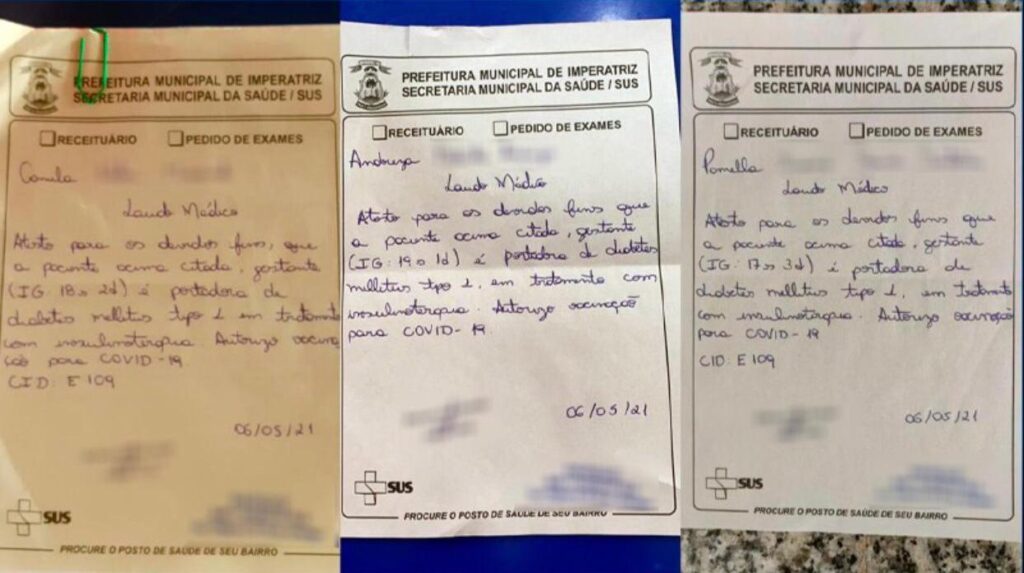 PREFEITURA MUNICIPAL DE IMPERATRIZ
SECRETARIA MUNICIPAL DA SAÚDE / SUS
RECEITUÁRIO PEDIDO DE EXAMES
Camila
Laudo Médico
Atesto para os devidos fins, que
a paciente acima citada, gestante
(IG: 18s 2d) é portadora de
diabetes mellitus tipo 1 em tratamento
com insulinoterapia. Autorizo vacina
ção para COVID-19.
CID: E109
06/05/21
SUS
PROCURE O POSTO DE SAÚDE DE SEU BAIRRO
PREFEITURA MUNICIPAL DE IMPERATRIZ
SECRETARIA MUNICIPAL DA SAÚDE / SUS
RECEITUÁRIO PEDIDO DE EXAMES
Andreza
Laudo Médico
Atesto para os devidos fins que
a paciente acima citada, gestante
(IG: 19s 1d) é portadora de diabetes
mellitus tipo 1, em tratamento com
insulinoterapia. Autorizo vacinação
para COVID-19.
06/05/21
SUS
PROCURE O POSTO DE SAÚDE DE SEU BAIRRO
PREFEITURA MUNICIPAL DE IMPERATRIZ
SECRETARIA MUNICIPAL DA SAÚDE / SUS
RECEITUÁRIO PEDIDO DE EXAMES
Pamella
Laudo Médico
Atesto para os devidos fins que
a paciente acima citada, gestante
(IG: 17s 3d) é portadora de
diabetes mellitus tipo 1, em tratamento
com insulinoterapia. Autorizo vacinação
para COVID-19
CID: E109
06/05/21
SUS
PROCURE O POSTO DE SAÚDE DE SEU BAIRRO